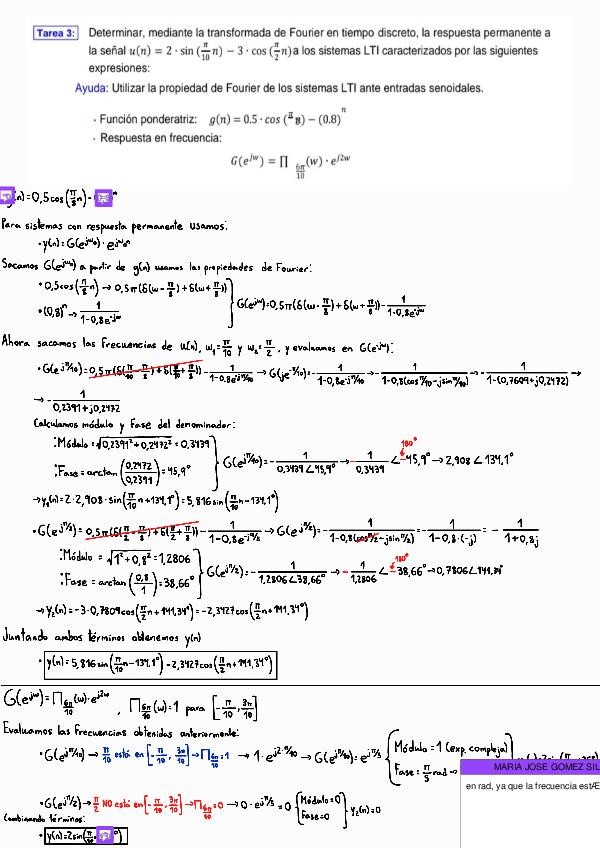 Tarea 3: Determinar, mediante la transformada de Fourier en tiempo discreto, la respuesta permanente a
la señal u(n) = 2 · sin (π/10 n) − 3 · cos (π/2 n) a los sistemas LTI caracterizados por las siguientes
expresiones:
Ayuda: Utilizar la propiedad de Fourier de los sistemas LTI ante entradas senoidales.
· Función ponderatriz: g(n) = 0.5 · cos (π/8 n) − (0.8)^n
· Respuesta en frecuencia:
G(e^jw) = ∏ 6π/10 (w) · e^j2w
(n)=0,5cos(π/8 n)-
Para sistemas con respuesta permanente usamos:
· y(n)= G(e^jω₀) · e^jω₀n
Sacamos G(e^jω₀) a partir de g(n) usamos las propiedades de Fourier:
· 0,5cos(π/8 n) → 0,5π(δ(ω-π/8)+δ(ω+π/8))
· (0,8)^n → 1/(1-0,8e^-jω) } G(e^jω)=0,5π(δ(ω-π/8)+δ(ω+π/8))-1/(1-0,8e^-jω)
Ahora sacamos las frecuencias de u(n), ω₁=π/10 y ω₂=π/2, y evaluamos en G(e^jω):
· G(e^jπ/10)=0,5π(δ(π/10-π/8)+δ(π/10+π/8))-1/(1-0,8e^-jπ/10) → G(je^π/10)=-1/(1-0,8e^-jπ/10) → -1/(1-0,8(cosπ/10-jsinπ/10)) → -1/(1-(0,7609+j0,2472) →
→ -1/(0,2391+j0,2472)
Calculamos módulo y fase del denominador:
· Módulo=√(0,2391²+0,2472²)=0,3439
· Fase=arctan(0,2472/0,2391)=45,9° } G(e^jπ/10)=-1/(0,3439∠45,9°) → -1/0,3439 ∠-45,9° → 2,908 ∠134,1°
180°
→ y₁(n)=2·2,908·sin(π/10 n+134,1°)=5,816sin(π/10 n-134,1°)
· G(e^jπ/2)=0,5π(δ(π/2-π/8)+δ(π/2+π/8))-1/(1-0,8e^-jπ/2) → G(e^jπ/2)=-1/(1-0,8(cosπ/2-jsinπ/2)=-1/(1-0,8·(-j)=-1/(1+0,8j)
· Módulo=√(1²+0,8²)=1,2806
· Fase=arctan(0,8/1)=38,66° } G(e^jπ/2)=-1/(1,2806∠38,66°) → -1/1,2806 ∠-38,66° → 0,7806∠141,34°
180°
→ y₂(n)=-3·0,7809cos(π/2 n+141,34°)=-2,3427cos(π/2 n+141,34°)
Juntando ambos términos obtenemos y(n)
· y(n)=5,816sin(π/10 n-134,1°)-2,3427cos(π/2 n+141,34°)
G(e^jω)=∏6π/10(ω)·e^j2ω , ∏6π/10(ω)=1 para [-π/10, 3π/10]
Evaluamos las frecuencias obtenidas anteriormente:
· G(e^jπ/10) → π/10 está en [-π/10, 3π/10] → ∏6π/10=1 → 1·e^j2·π/10 → G(e^jπ/10)=e^jπ/5 { Módulo=1 (exp. compleja)
Fase=π/5 rad →
MARIA JOSE GOMEZ SIL
en rad, ya que la frecuencia est
· G(e^jπ/2) → π/2 NO está en [-π/10, 3π/10] → ∏6π/10=0 → 0·e^jπ/5=0 { Módulo=0 Fase=0 } y₂(n)=0
Combinando términos:
· y(n)=2sin(π/10